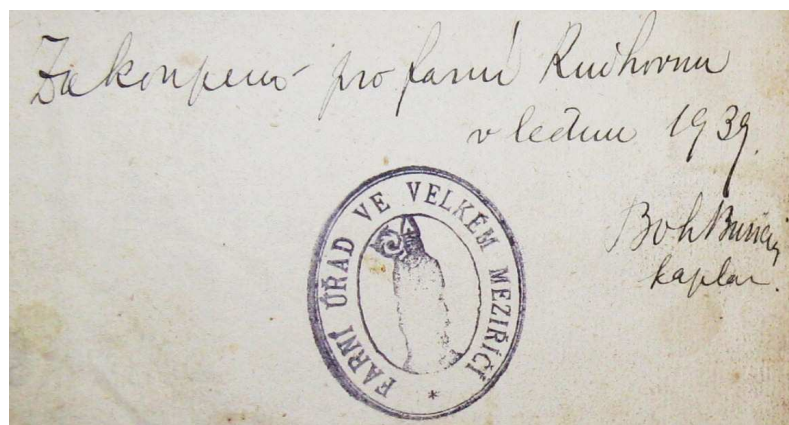 Zakoupeno pro farní Knihovnu
v lednu 1939.
Boh
kaplan.
FARNÍ ÚŘAD VE VELKÉM MEZIŘÍČÍ *